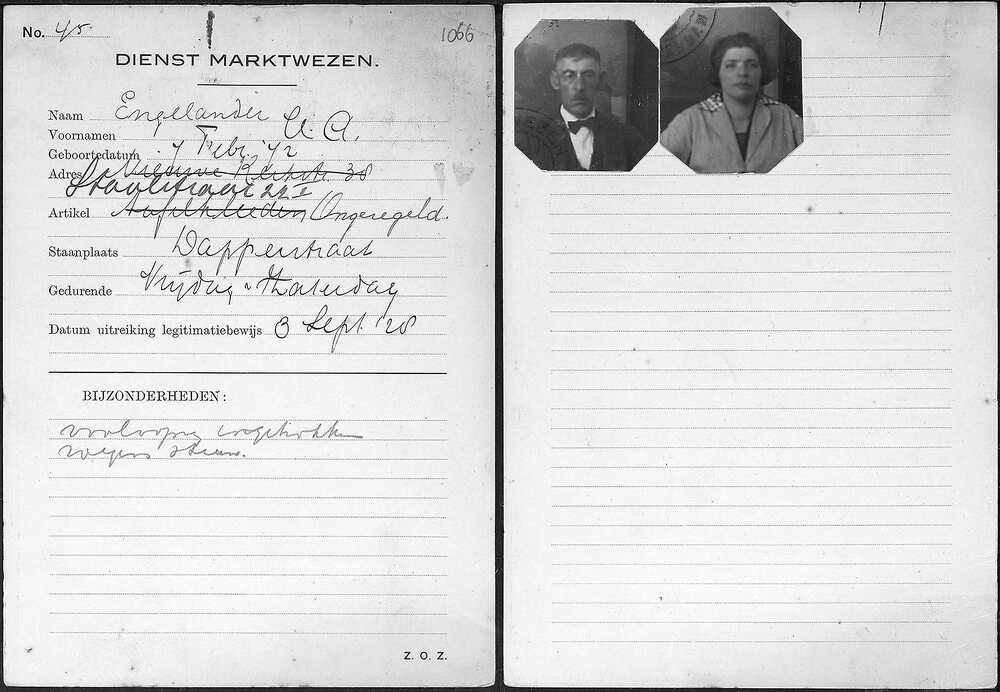 No. 45
1066
DIENST MARKTWEZEN.
Naam Engelander
Voornamen A.
Geboortedatum 7 Febr. '72
Adres Nieuwe Kerkstr. 38
Staalstraat 22 I
Artikel Ongeregeld.
Staanplaats Dapperstraat
Gedurende Vrijdag Zaterdag
Datum uitreiking legitimatiebewijs 3 Sept. '28
BIJZONDERHEDEN:
voorloopig ingetrokken
wegens steun.
Z. O. Z.